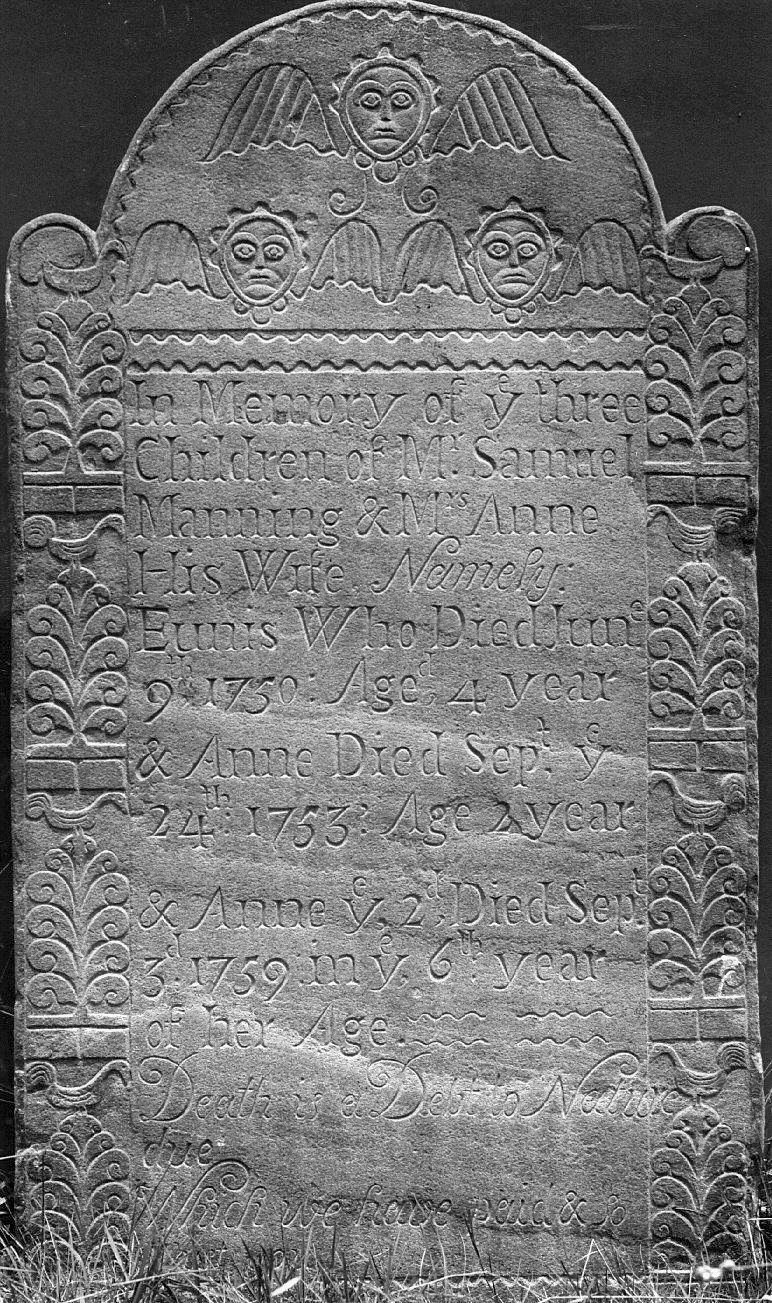 In Memory of yᵉ three
Children of Mʳ. Samuel
Manning & Mʳˢ Anne
His Wife. Namely:
Eunis Who Died Junᵉ
9ᵗʰ: 1750: Ageᵈ, 4 year
& Anne Died Sepᵗ, yᵉ
24ᵗʰ: 1753: Age 2 year
& Anne yᵉ, 2ᵈ, Died Sepᵗ.
3ᵈ. 1759 in yᵉ, 6ᵗʰ: year
of her Age.
Death is a Debt to Nature
due
Which we have paid & so